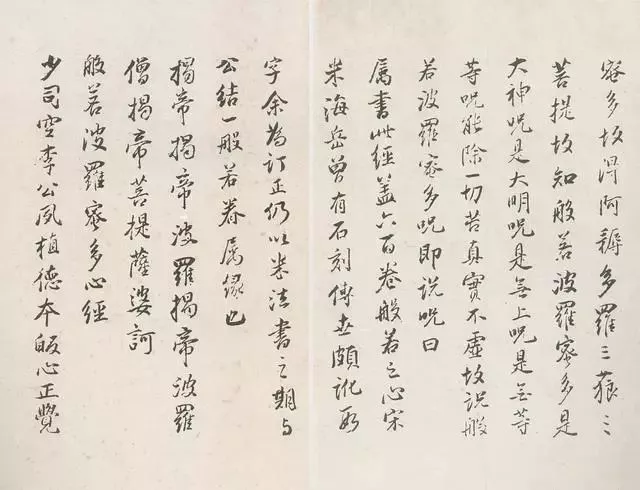 蜜多故得阿耨多羅三藐三
菩提故知般若波羅蜜多是
大神咒是大明咒是无上咒是无等
等咒能除一切苦真實不虛故說般
若波羅蜜多咒即說咒曰
属書此經蓋六百卷般若之心宋
米海岳曾有石刻傳世頗訛數
字余為訂正仍以米法書之期与
公結一般若眷属缘也
揭帝揭帝波羅揭帝波羅
僧揭帝菩提薩婆訶
般若波羅蜜多心經
少司空李公夙植德本皈心正覺